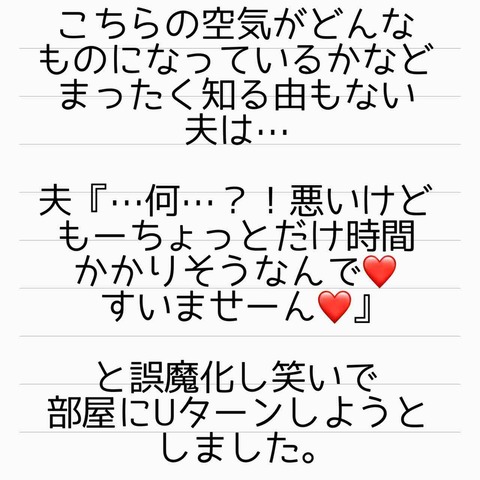 こちらの空気がどんな
ものになっているかなど
まったく知る由もない
夫は…
夫『…何…？！悪いけど
もーちょっとだけ時間
かかりそうなんで❤️
すいませーん❤️』
と誤魔化し笑いで
部屋にUターンしようと
しました。